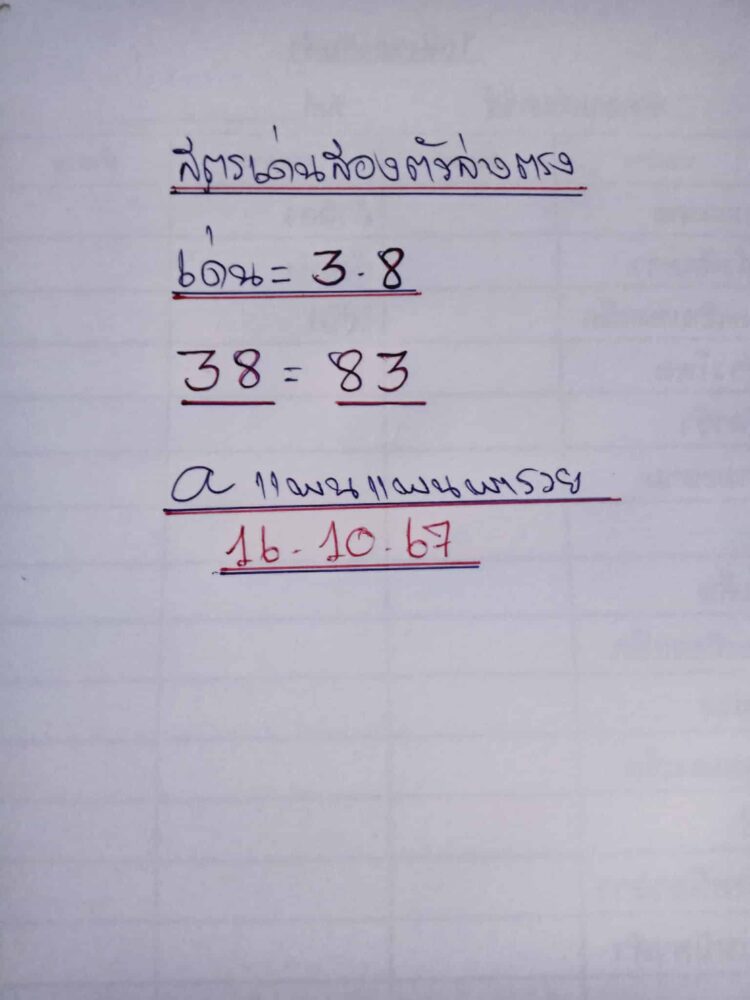 สูตรเด่นสองตัวล่างตรง
เด่น = 3.8
38 = 83
a แพนแพนพารวย
16.10.67